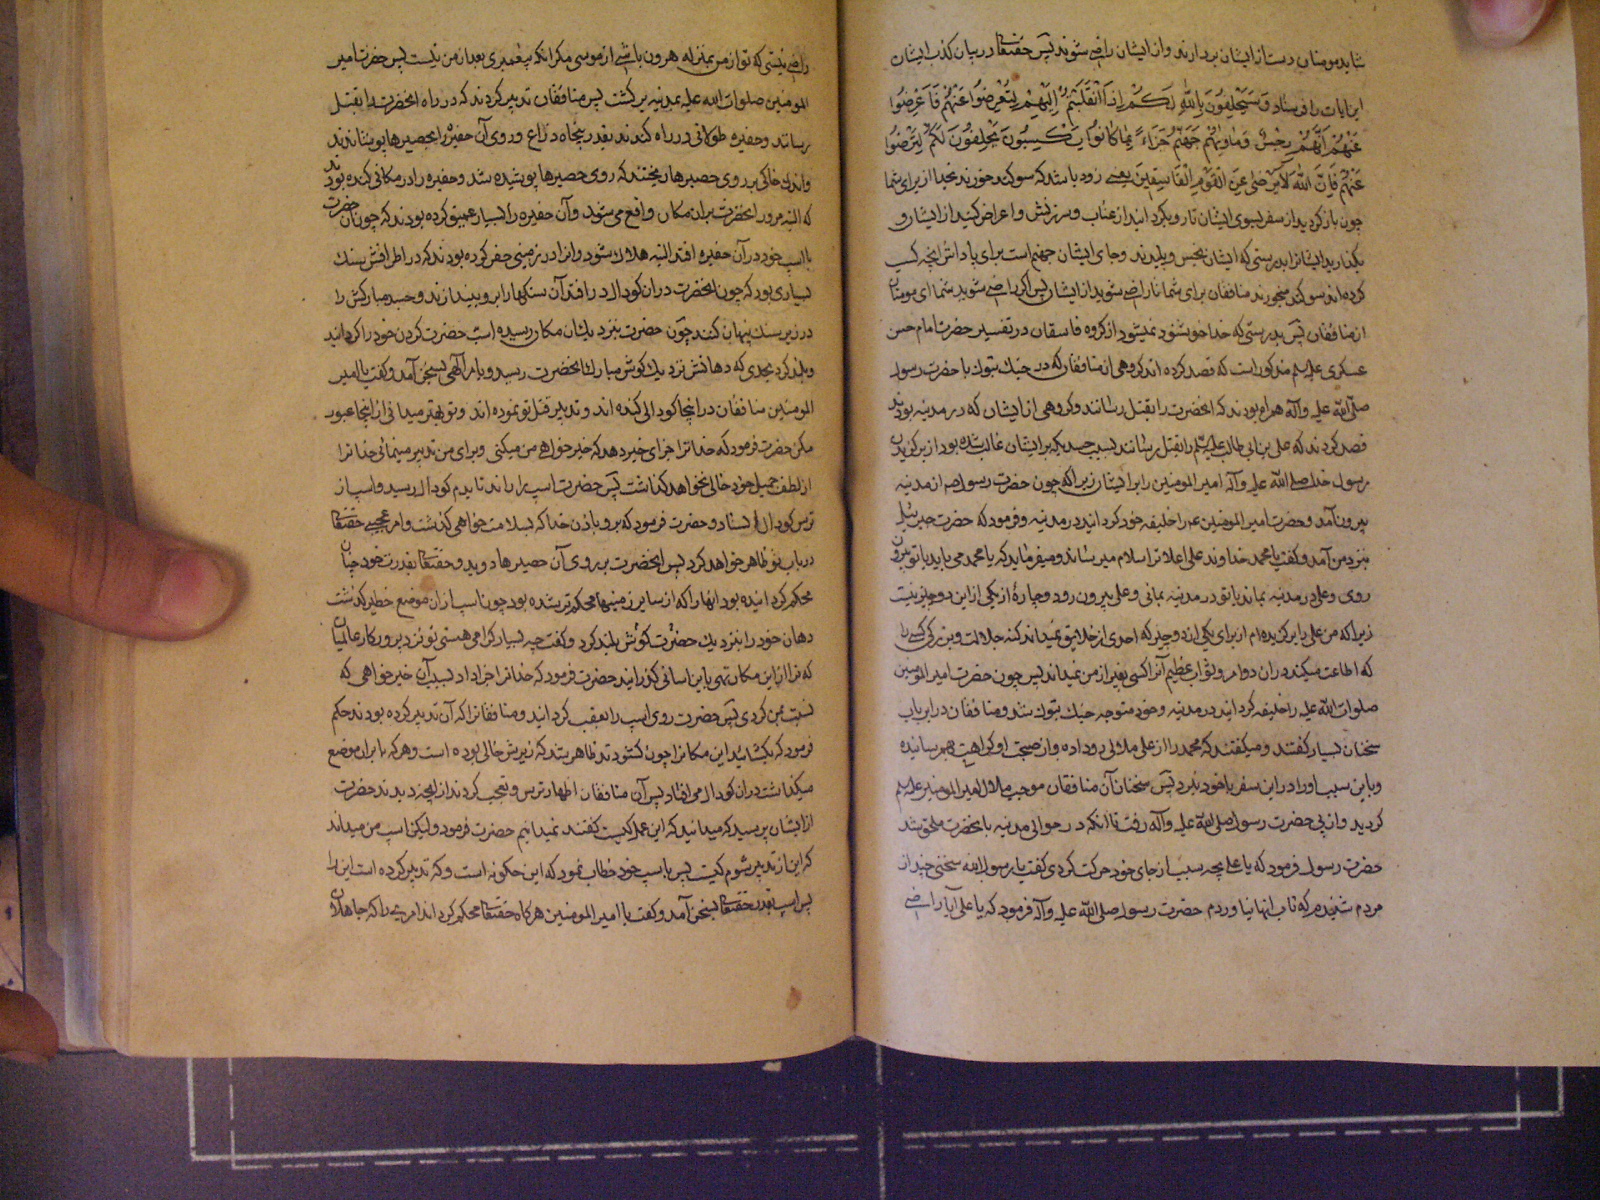 شاید مومنان دست از ایشان بردارند و از ایشان راضی شوند پس حقتعالی در بیان کذب ایشان
این ایات را فرستاد و سَیَحْلِفُونَ بِاللّهِ لَکُمْ اِذَا انْقَلَبْتُمْ اِلَیْهِمْ لِتُعْرِضُوا عَنْهُمْ فَاَعْرِضُوا
عَنْهُمْ اِنَّهُمْ رِجْسٌ وَمَاْویهُمْ جَهَنَّمُ جَزَاءً بِمَا کَانُوا یَکْسِبُونَ یَحْلِفُونَ لَکُمْ لِتَرْضَوْا
عَنْهُمْ فَاِنَّ اللّهَ لَا یَرْضی عَنِ الْقَوْمِ الْفَاسِقِینَ یعنی زود باشد که سوکند خورند بخدا از برای شما
چون باز کردید از سفر بسوی ایشان تا رو بکردانید از عتاب و سرزنش و اعراض کنید از ایشان و
بکذارید ایشانرا بدرستی که ایشان نجس و پلیدند و جای ایشان جهنم است برای پاداش انچه کسب
کرده اند سوکند میخورند منافقان برای شما تا راضی شوید از ایشان پس اکر راضی شوید شما ای مومنان
از منافقان پس بدرستی که خدا خوشنود نمیشود از کروه فاسقان در تفسیر حضرت امام حسن
عسکری علیه السلم مذکور است که قصد کرده اند کروهی از منافقان که در جنک تبوک با حضرت رسول
صلی الله علیه و آله همراه بودند که انحضرت را بقتل رسانند و کروهی از ایشان که در مدینه بودند
قصد کردند که علی بن ابی طالب علیه السلم را بقتل رسانند بسبب حسدی که بر ایشان غالب شده بود از برکزیدن
رسول خدا صلی الله علیه و آله امیر المومنین را بر ایشان زیرا که چون حضرت رسول ص از مدینه
بیرون آمد و حضرت امیر المومنین ع را خلیفه خود کردانید در مدینه و فرمود که حضرت جبرئیل
نزد من آمد و کفت یا محمد خداوند علی اعلا ترا سلام میرساند و میفرماید که یا محمد می باید یا تو بیرون
روی و علی در مدینه بماند یا تو در مدینه بمانی و علی بیرون رود و چارهٔ از یکی از این دو چیز نیست
زیرا که من علی را برکزیده ام از برای یکی از دو چیز که احدی از خلایق نمیداند کنه جلالت و بزرکی کسی را
که اطاعت میکند در ان دو امر و ثواب عظیم آنرا کسی بغیر از من نمیداند پس چون حضرت امیر المومنین
صلوات الله علیه را خلیفه کردانید در مدینه و خود متوجه جنک تبوک شد و منافقان در این باب
سخنان بسیار کفتند و میکفتند که محمد را از علی ملالی رو داده و از صحبت او کراهیت بهم رسانیده
و باین سبب او را در این سفر با خود نبرد پس سخنان آن منافقان موجب ملال امیر المومنین علیه السلم
کردید و از پی حضرت رسول صلی الله علیه و آله رفت تا آنکه در حوالی مدینه با نحضرت ملحق شد
حضرت رسول فرمود که یا علی بچه سبب از جای خود حرکت کردی کفت یا رسول الله سخنی چند از
مردم شنیدم که تاب انها نیاوردم حضرت رسول صلی الله علیه و آله فرمود که یا علی آیا راضی
راضی نیستی که تو از من بمنزله هرون باشی از موسی مکر انکه پیغمبری بعد از من نیست پس حضرت امیر
المومنین صلوات الله علیه بمدینه برکشت پس منافقان تدبیر کردند که در راه انحضرت را بقتل
رسانند و حفیره طولانی در راه کندند بقدر پنجاه ذراع و روی آن حفیره را بحصیرها پوشانیدند
و اندک خاکی بر روی حصیرها ریختند که روی حصیرها پوشیده شد و حفیره را در مکانی کنده بودند
که البته مرور انحضرت بران مکان واقع می شود و آن حفیره را بسیار عمیق کرده بودند که چون ان حضرت
با اسب خود در آن حفیره افتد البته هلاک شود و انرا در زمینی حفر کرده بودند که در اطرافش سنک
بسیاری بود که چون انحضرت در ان کودال در افتد آن سنکها را برو بیندازند و جسد مبارکش را
در زیر سنک پنهان کنند چون حضرت بنزدیک ان مکان رسید اسب حضرت کردن خود را کردانید
و بلند کرد بحدی که دهانش نزدیک کوش مبارک انحضرت رسید و بامر الهی بسخن آمد و کفت یا امیر
المومنین منافقان در اینجا کودالی کنده اند و تدبیر قتل تو نموده اند و تو بهتر میدانی از اینجا عبور
مکن حضرت فرمود که خدا ترا جزای خیر دهد که خیرخواهی من میکنی و برای من تدبیر مینمائی خدا ترا
از لطف جمیل خود خالی نخواهد کذاشت پس حضرت اسب را راند تا بدم کودال رسید و اسب از
ترس کودال ایستاد و حضرت فرمود که برو باذن خدا که بسلامت خواهی کذشت و امر عجیبی حقتعالی
در باب تو ظاهر خواهد کرد پس انحضرت بر روی آن حصیرها دوید و حقتعالی بقدرت خود چنان
محکم کردانیده بود انها را که از سایر زمینها محکم تر شده بود چون اسب از ان موضع خطیر کذشت
دهان خود را بنزدیک حضرت کوش بلند کرد و کفت چه بسیار کرامی هستی تو نزد پروردکار عالمیان
که ترا از این مکان تهی باین اسانی کذرانید حضرت فرمود که خدا ترا جزا داد بسبب آن خیرخواهی که
نسبت بمن کردی پس حضرت روی اسب را بعقب کردانید و منافقانرا که آن تدبیر کرده بودند حکم
فرمود که بکشائید این مکانرا چون کشودند ظاهر شد که زیرش خالی بوده است و هر که پا بران موضع
میکذاشت در ان کودال می افتاد پس آن منافقان اظهار ترس و تعجب کردند از انچه دیدند حضرت
از ایشان پرسید که میدانید که این عمل کیست کفتند نمیدانیم حضرت فرمود ولیکن اسب من میداند
که این از تدبیر شوم کیست پس با اسب خود خطاب نمود که این چکونه است و که تدبیر کرده است این را
پس اسب بقدرت حقتعالی بسخن آمد و کفت یا امیر المومنین هرکاه حقتعالی محکم کرداند امری را که جاهلان